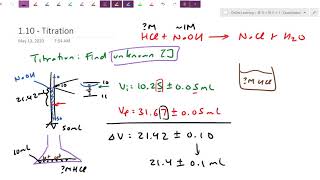 1.10 - Titration
May 13, 2020 7:54 AM
?M ~1M
HCl + NaOH → NaCl + H2O
Titration: Find unknown []
NaOH
21.42
50mL
10mL
?M HCl
Vi = 10.25 ± 0.05 mL
Vf = 31.67 ± 0.05 mL
ΔV = 21.42 ± 0.10
21.4 ± 0.1 mL
?M HCl